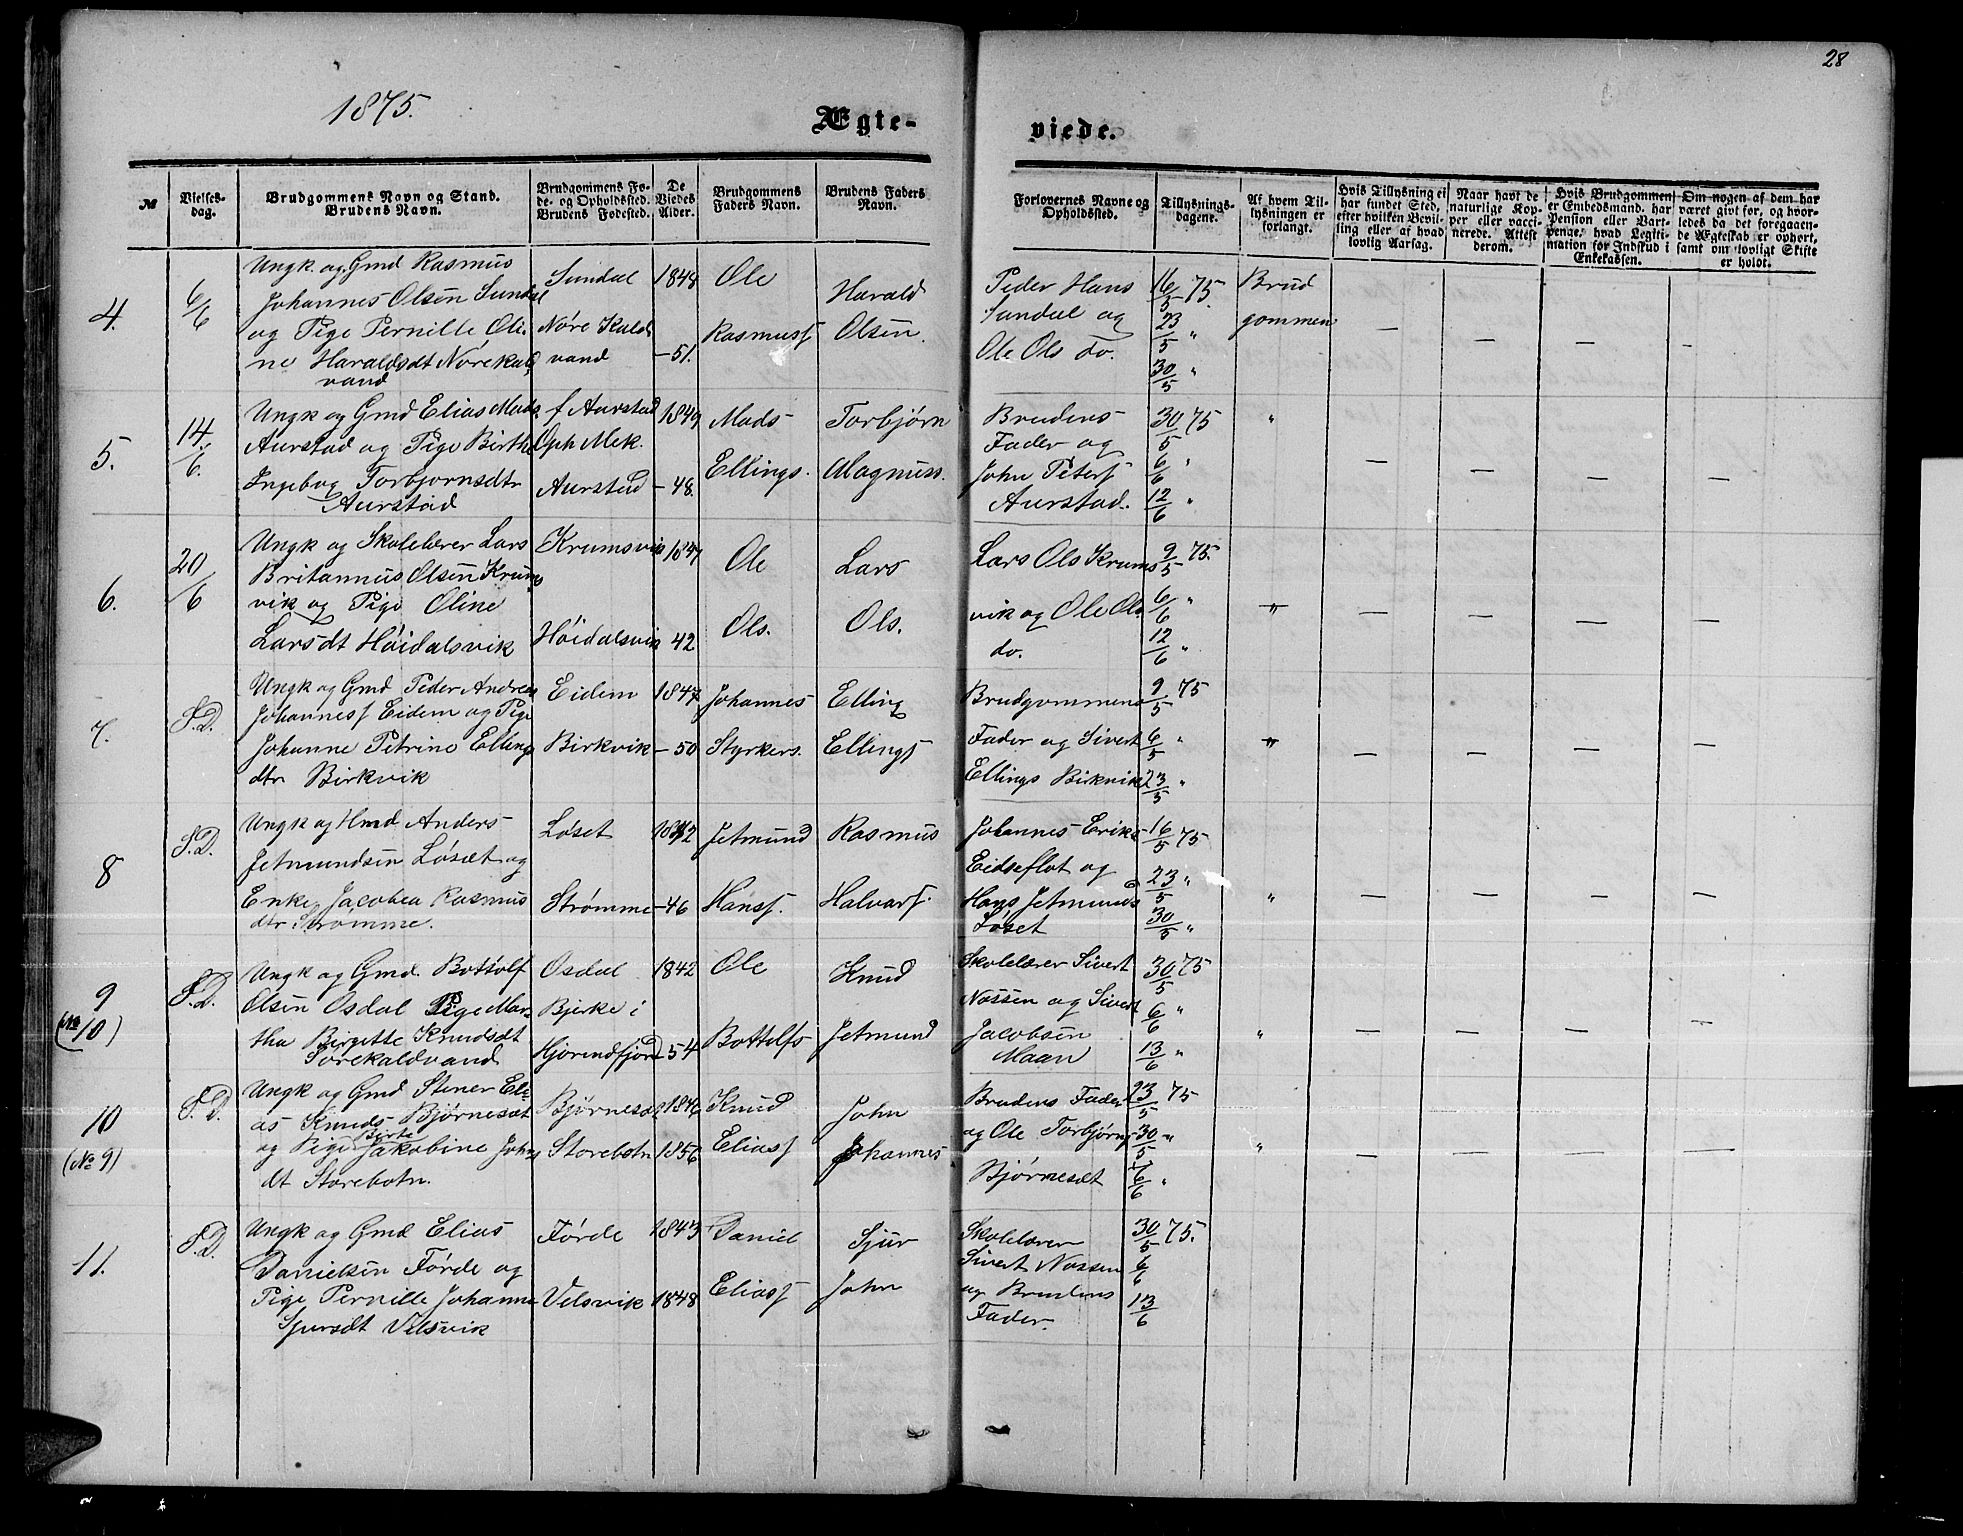 28
1875.
Ægte-
viede.
№
Vielses-
dag.
Brudgommens Navn og Stand.
Brudens Navn.
Brudgommens Fø-
de- og Opholdssted.
Brudens Fødested.
De
Viedes
Alder.
Brudgommens
Faders Navn.
Brudens Faders
Navn.
Forlovernes Navne og
Opholdssted.
Tillysnings-
dagene.
Af hvem Til-
lysningen er
forlangt.
Hvis Tillysning ei
har fundet Sted,
efter hvilken Bevil-
ling eller af hvad
lovlig Aarsag.
Naar havt de
naturlige Kop-
per eller vacci-
nerede. Attest
derom.
Hvis Brudgommen
er Embedsmand, har
Pension eller Vart-
penge, hvad Legiti-
mation for Indskud i
Enkekassen.
Om nogen af dem har
været gift før, og hvor-
ledes da det foregaaen-
de Ægteskab er ophørt,
samt om lovligt Skifte
er holdt.
4.
6/6
Ungk. og Gmd Rasmus
Johannes Olsen Sundal
og Pige Pernille Oli-
ne Haraldsdt Nørekald
vand
Sundal
Nøre Kald
vand
1848
- 51.
Ole
Rasmuss
Harald
Olsen.
Peder Hans
Sundal og
Ole Ols do.
16/5 75.
23/5 "
30/5 "
Brud
gommen
— — — -
5.
14/6.
Ungk og Gmd Elias Mads
Aurstad og Pige Birthe
Ingebog Torbjørnsdtr
Aurstad
f Aurstad
Oph Mek.
Aurstad
1849
- 48.
Mads
Ellings.
Torbjørn
Magnuss.
Brudens
Fader og
John Peters
Aurstad.
30/5 75
6/6 "
12/6 "
"
— — — —
6.
20/6
Ungk og Skolelærer Lars
Britannus Olsen Krums
vik og Pige Oline
Larsdt Høidalsvik
Krumsvik
Høidalsvik
1847
42
Ole
Ols.
Lars
Ols.
Lars Ols Krums
vik og Ole Ols
do.
9/5 75.
6/6 "
12/6 "
"
— — — —
7.
S.D.
Ungk og Gmd Peder Andreas
Johanness Eidem og Pige
Johanne Petrine Ellings
dtr Birkvik
Eidem
Birkvik
1847
- 50
Johannes
Styrkers.
Elling
Ellings
Brudgommens
Fader og Sivert
Ellings Birkvik
9/5 75
6/5 "
23/5 "
"
— — — —
8
S.D.
Ungk og Hmd Anders
Jetmundsen Løset og
Enke Jacobea Rasmus
dtr Strømme.
Løset
Strømme
1842
- 46
Jetmund
Hanss.
Rasmus
Halvars.
Johannes Eriks
Eidseflot og
Hans Jetmunds
Løset
16/5 75
23/5 "
30/5 "
"
— — — —
9
(№ 10)
S.D.
Ungk og Gmd. Bottolf
Olsen Osdal Pige Mar
tha Birgitte Knudsdt
Sørekaldvand
Osdal
Bjerke i
Hjørendfjord
1842
- 54
Ole
Bottolfs
Knud
Jetmund
Skolelærer Sivert
Nossen og Sivert
Jacobsen
Maan
30/5 75
6/6 "
13/6 "
"
— — — —
10
(№ 9)
S.D.
Ungk og Gmd Stener Eli
as Knuds Bjørnesæt
og Pige Birte Jakobine Johns
dt Storebotn.
Bjørnesæt
Storebotn
1846
1856
Knud
Eliass
John
Johannes
Brudens Fader
og Ole Torbjørns
Bjørnesæt
23/5 75
30/5 "
6/6 "
"
— — — —
11.
S.D.
Ungk og Gmd Elias
Danielsen Førde og
Pige Pernille Johanne
Sjursdt Velsvik
Førde
Velsvik
1843
1848
Daniel
Eliass
Sjur
John
Skolelærer
Sivert Nossen
og Brudens
Fader.
30/5 75.
6/6
13/6